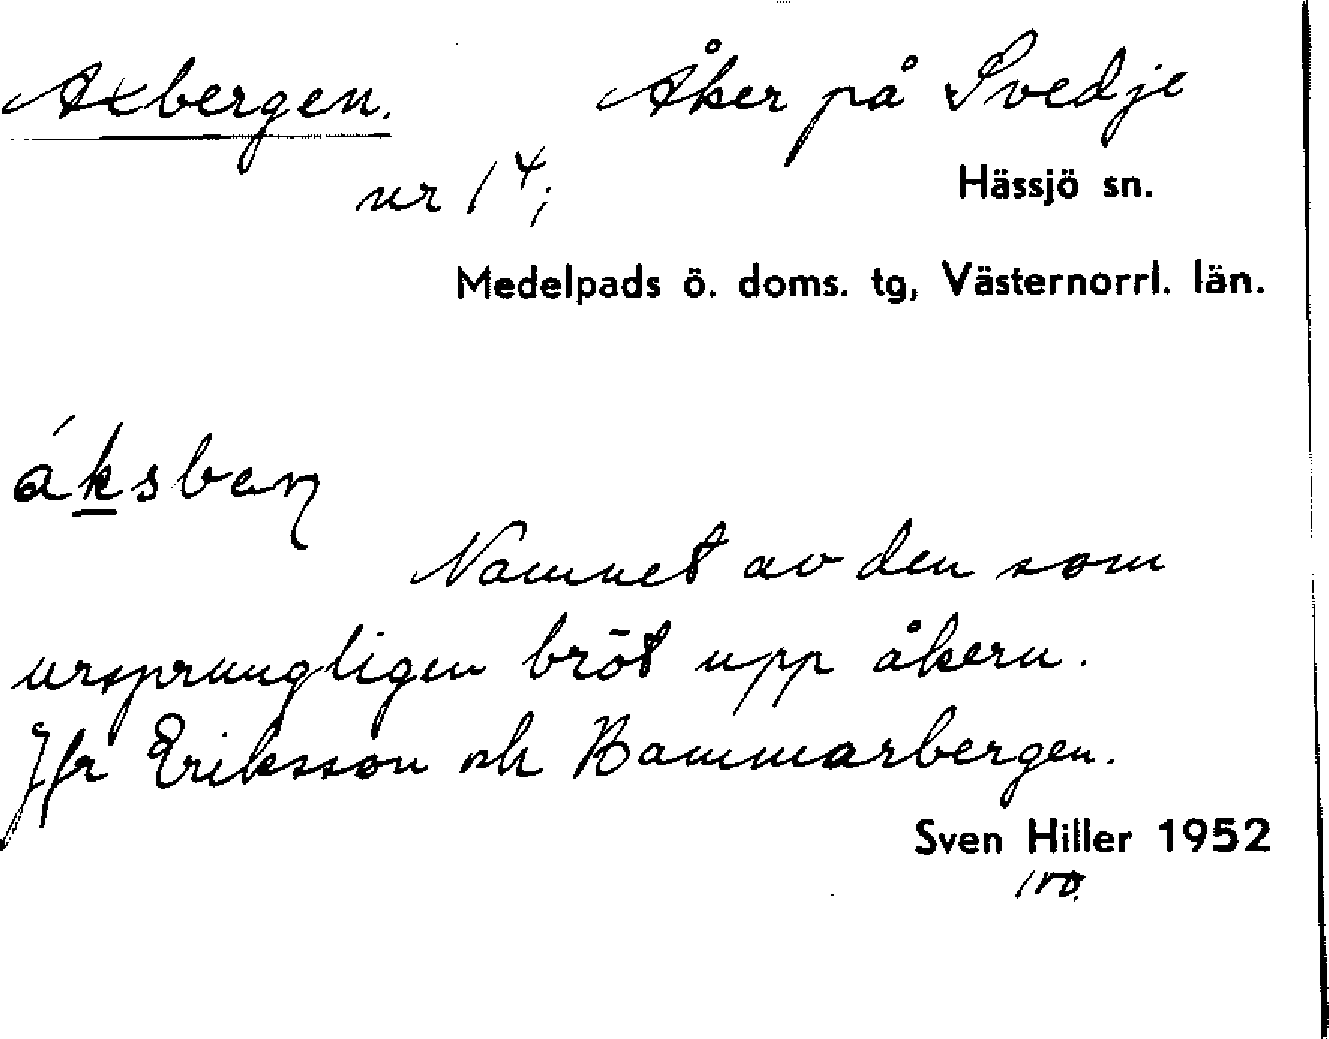 Axbergen. Åker på Svedje
nr 1⁴;
Hässjö sn.
Medelpads ö. doms. tg, Västernorrl. län.
áksbæŋ
Namnet av den som
ursprungligen bröt upp åkern.
Jfr Eriksson och Hammarbergen.
Sven Hiller 1952